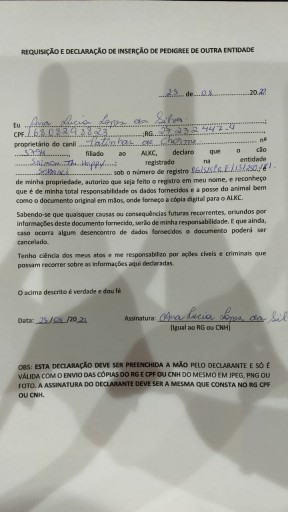 REQUISIÇÃO E DECLARAÇÃO DE INSERÇÃO DE PEDIGREE DE OUTRA ENTIDADE
23 de 08 2021
Eu Ana Lucia Lopes da Silva
CPF ;RG
proprietário do canil Patinhas de nº
, filiado ao ALKC, declaro que o cão
registrado na entidade
sob o número de registro
de minha propriedade, autorizo que seja feito o registro em meu nome, e reconheço
que é de minha total responsabilidade os dados fornecidos e a posse do animal bem
como o documento original em mãos, onde forneço a cópia digital para o ALKC.
Sabendo-se que quaisquer causas ou consequências futuras recorrentes, oriundos por
informações deste documento fornecido, serão de minha responsabilidade. E que ainda,
caso ocorra algum desencontro de dados fornecidos o documento poderá ser
cancelado.
Tenho ciência dos meus atos e me responsabilizo por ações cíveis e criminais que
possam recorrer sobre as informações aqui declaradas.
O acima descrito é verdade e dou fé
Data: /2021 Assinatura: Ana Lucia Lopes da Sil
(Igual ao RG ou CNH)
OBS: ESTA DECLARAÇÃO DEVE SER PREENCHIDA A MÃO PELO DECLARANTE E SÓ É
VÁLIDA COM O ENVIO DAS CÓPIAS DO RG E CPF OU CNH DO MESMO EM JPEG, PNG OU
FOTO. A ASSINATURA DO DECLARANTE DEVE SER A MESMA QUE CONSTA NO RG CPF
OU CNH.